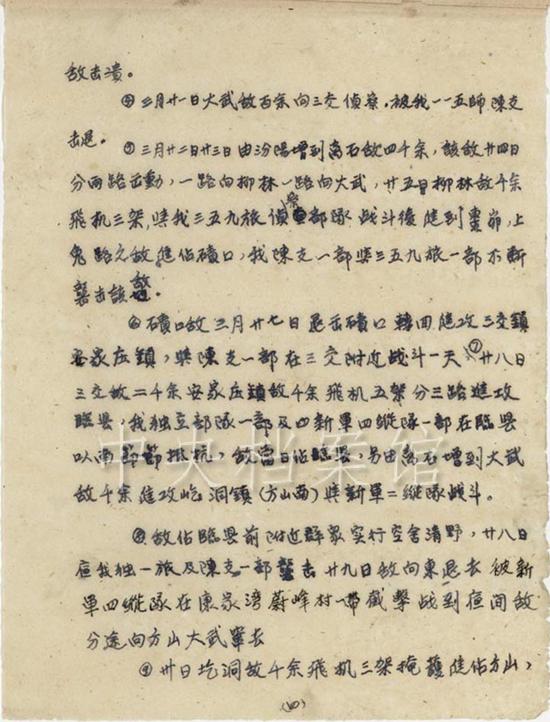 敌击溃。
④三月廿一日大武敌百余向三交侦察，被我一一五师陈支
击退。
⑤三月廿二日廿三日由汾阳增到离石敌四千余，该敌廿四日
分两路出动，一路向柳林一路向大武，廿五日柳林敌千余
飞机三架，与我三五九旅侦察部队战斗後进到，上
路之敌进佔碛口，我陈支一部与三五九旅一部不断
袭击该敌。
⑥碛口敌三月廿七日退出碛口转回进攻三交镇
安家庄镇，与陈支一部在三交附近战斗一天⑦廿八日
三交敌二千余安家庄镇敌千余飞机五架分三路进攻
临县，我独立部队一部及四新军四纵队一部在临县
以南节节抵抗，敌当日佔临县，另由离石增到大武
敌千余进攻圪洞镇（方山南）与新军二纵队战斗。
⑧敌佔临县前附近群众实行空舍清野，廿八日
夜我独一旅及陈支一部袭击廿九日敌向东退去被新
军四纵队在康家湾蔚峰村一带截击战到夜间敌
分途向方山大武窜去
⑨卅日圪洞敌千余飞机三架掩护进佔方山，
中央档案馆